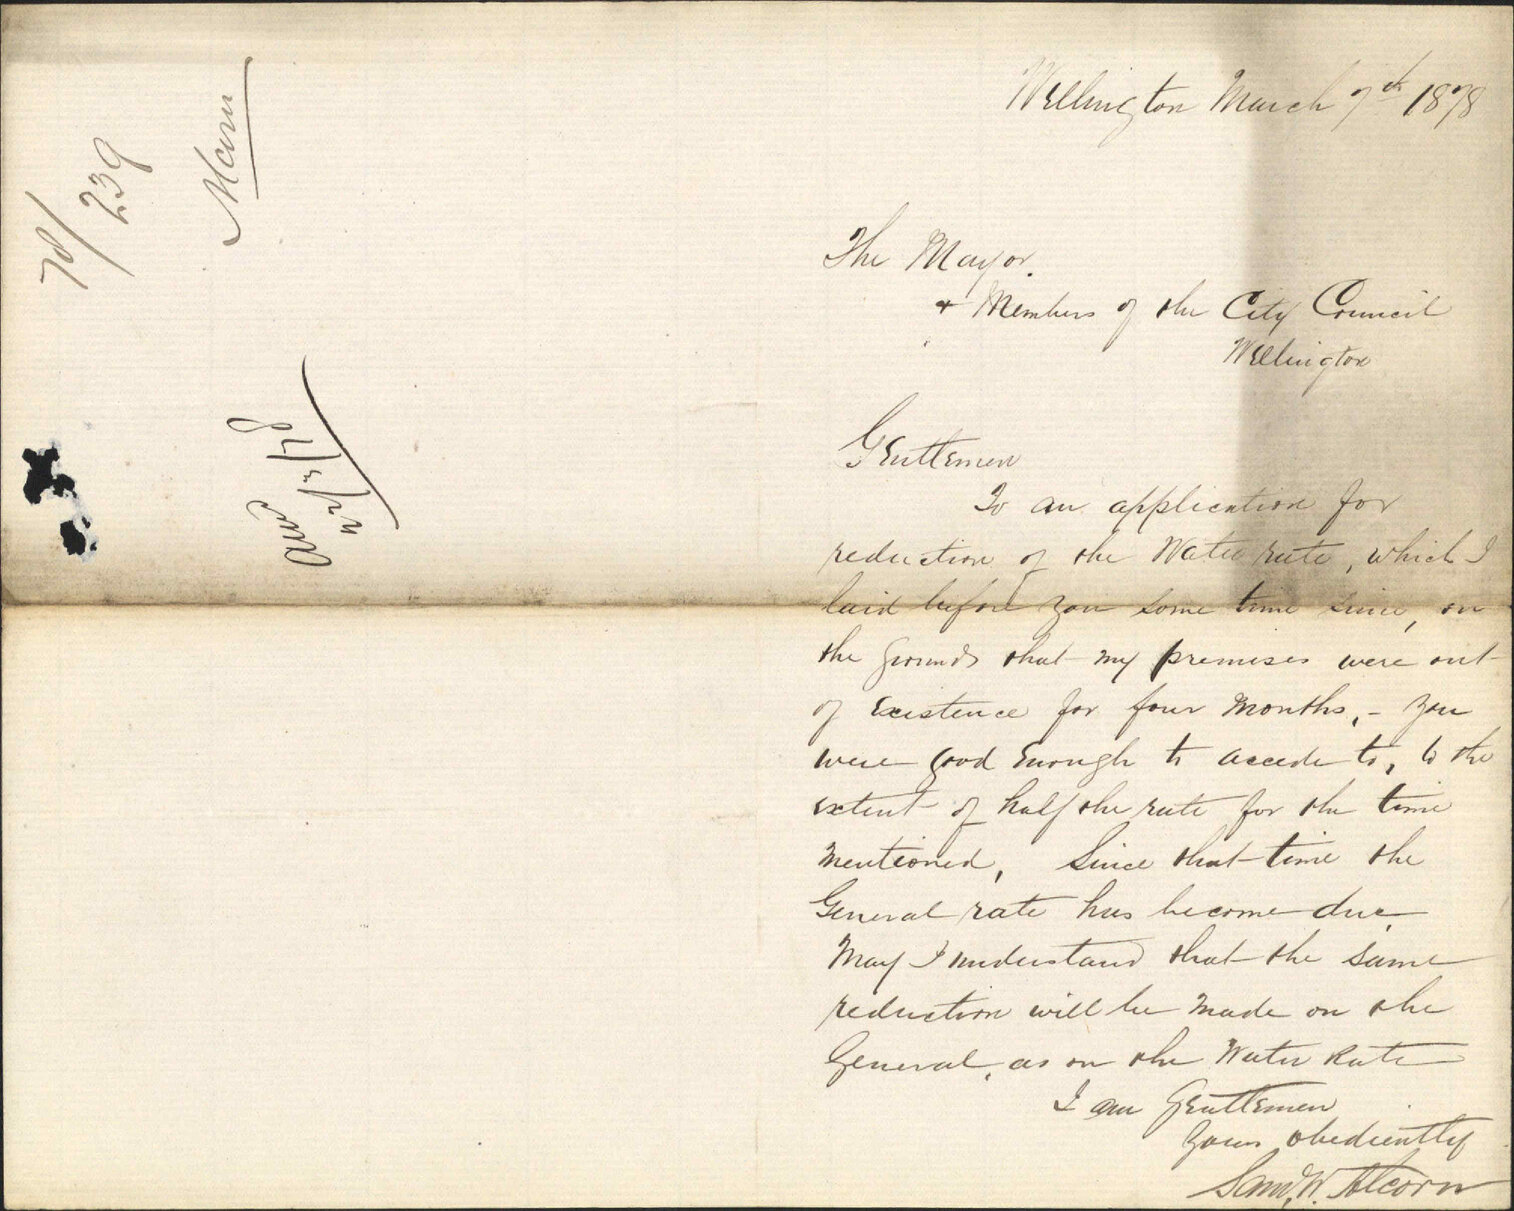 78/239
Mem
Ans
22/3/78
Wellington March 7th 1878
The Mayor.
+ Members of the City Council
Wellington
Gentlemen
To an application for
reduction of the Water rate, which I
laid before you some time since, on
the grounds that my premises were out
of existence for four months, - you
were good enough to accede to, to the
extent of half the rate for the time
mentioned, Since that time the
General rate has become due.
May I understand that the same
reduction will be made on the
General, as on the Water Rate
I am Gentlemen
Yours obediently
Saml. W. Alcorn